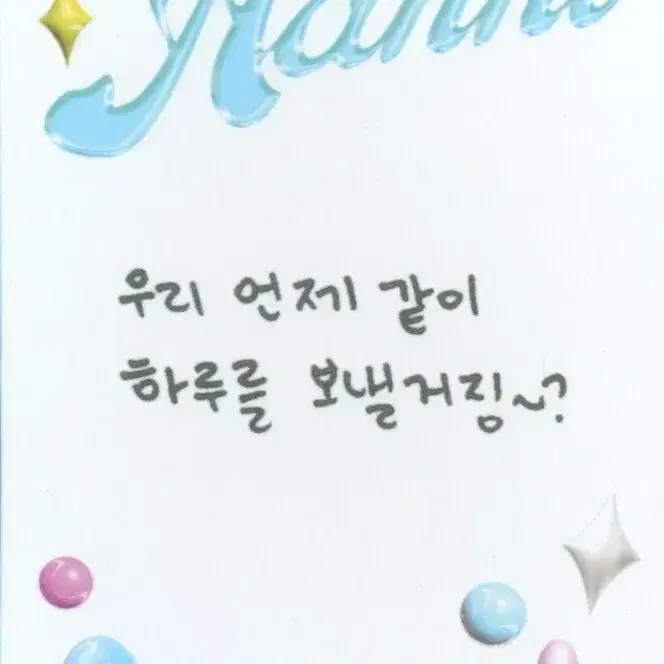 우리 언제 같이
하루를 보낼거징~?